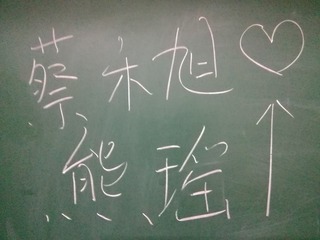 蔡东旭
熊瑶